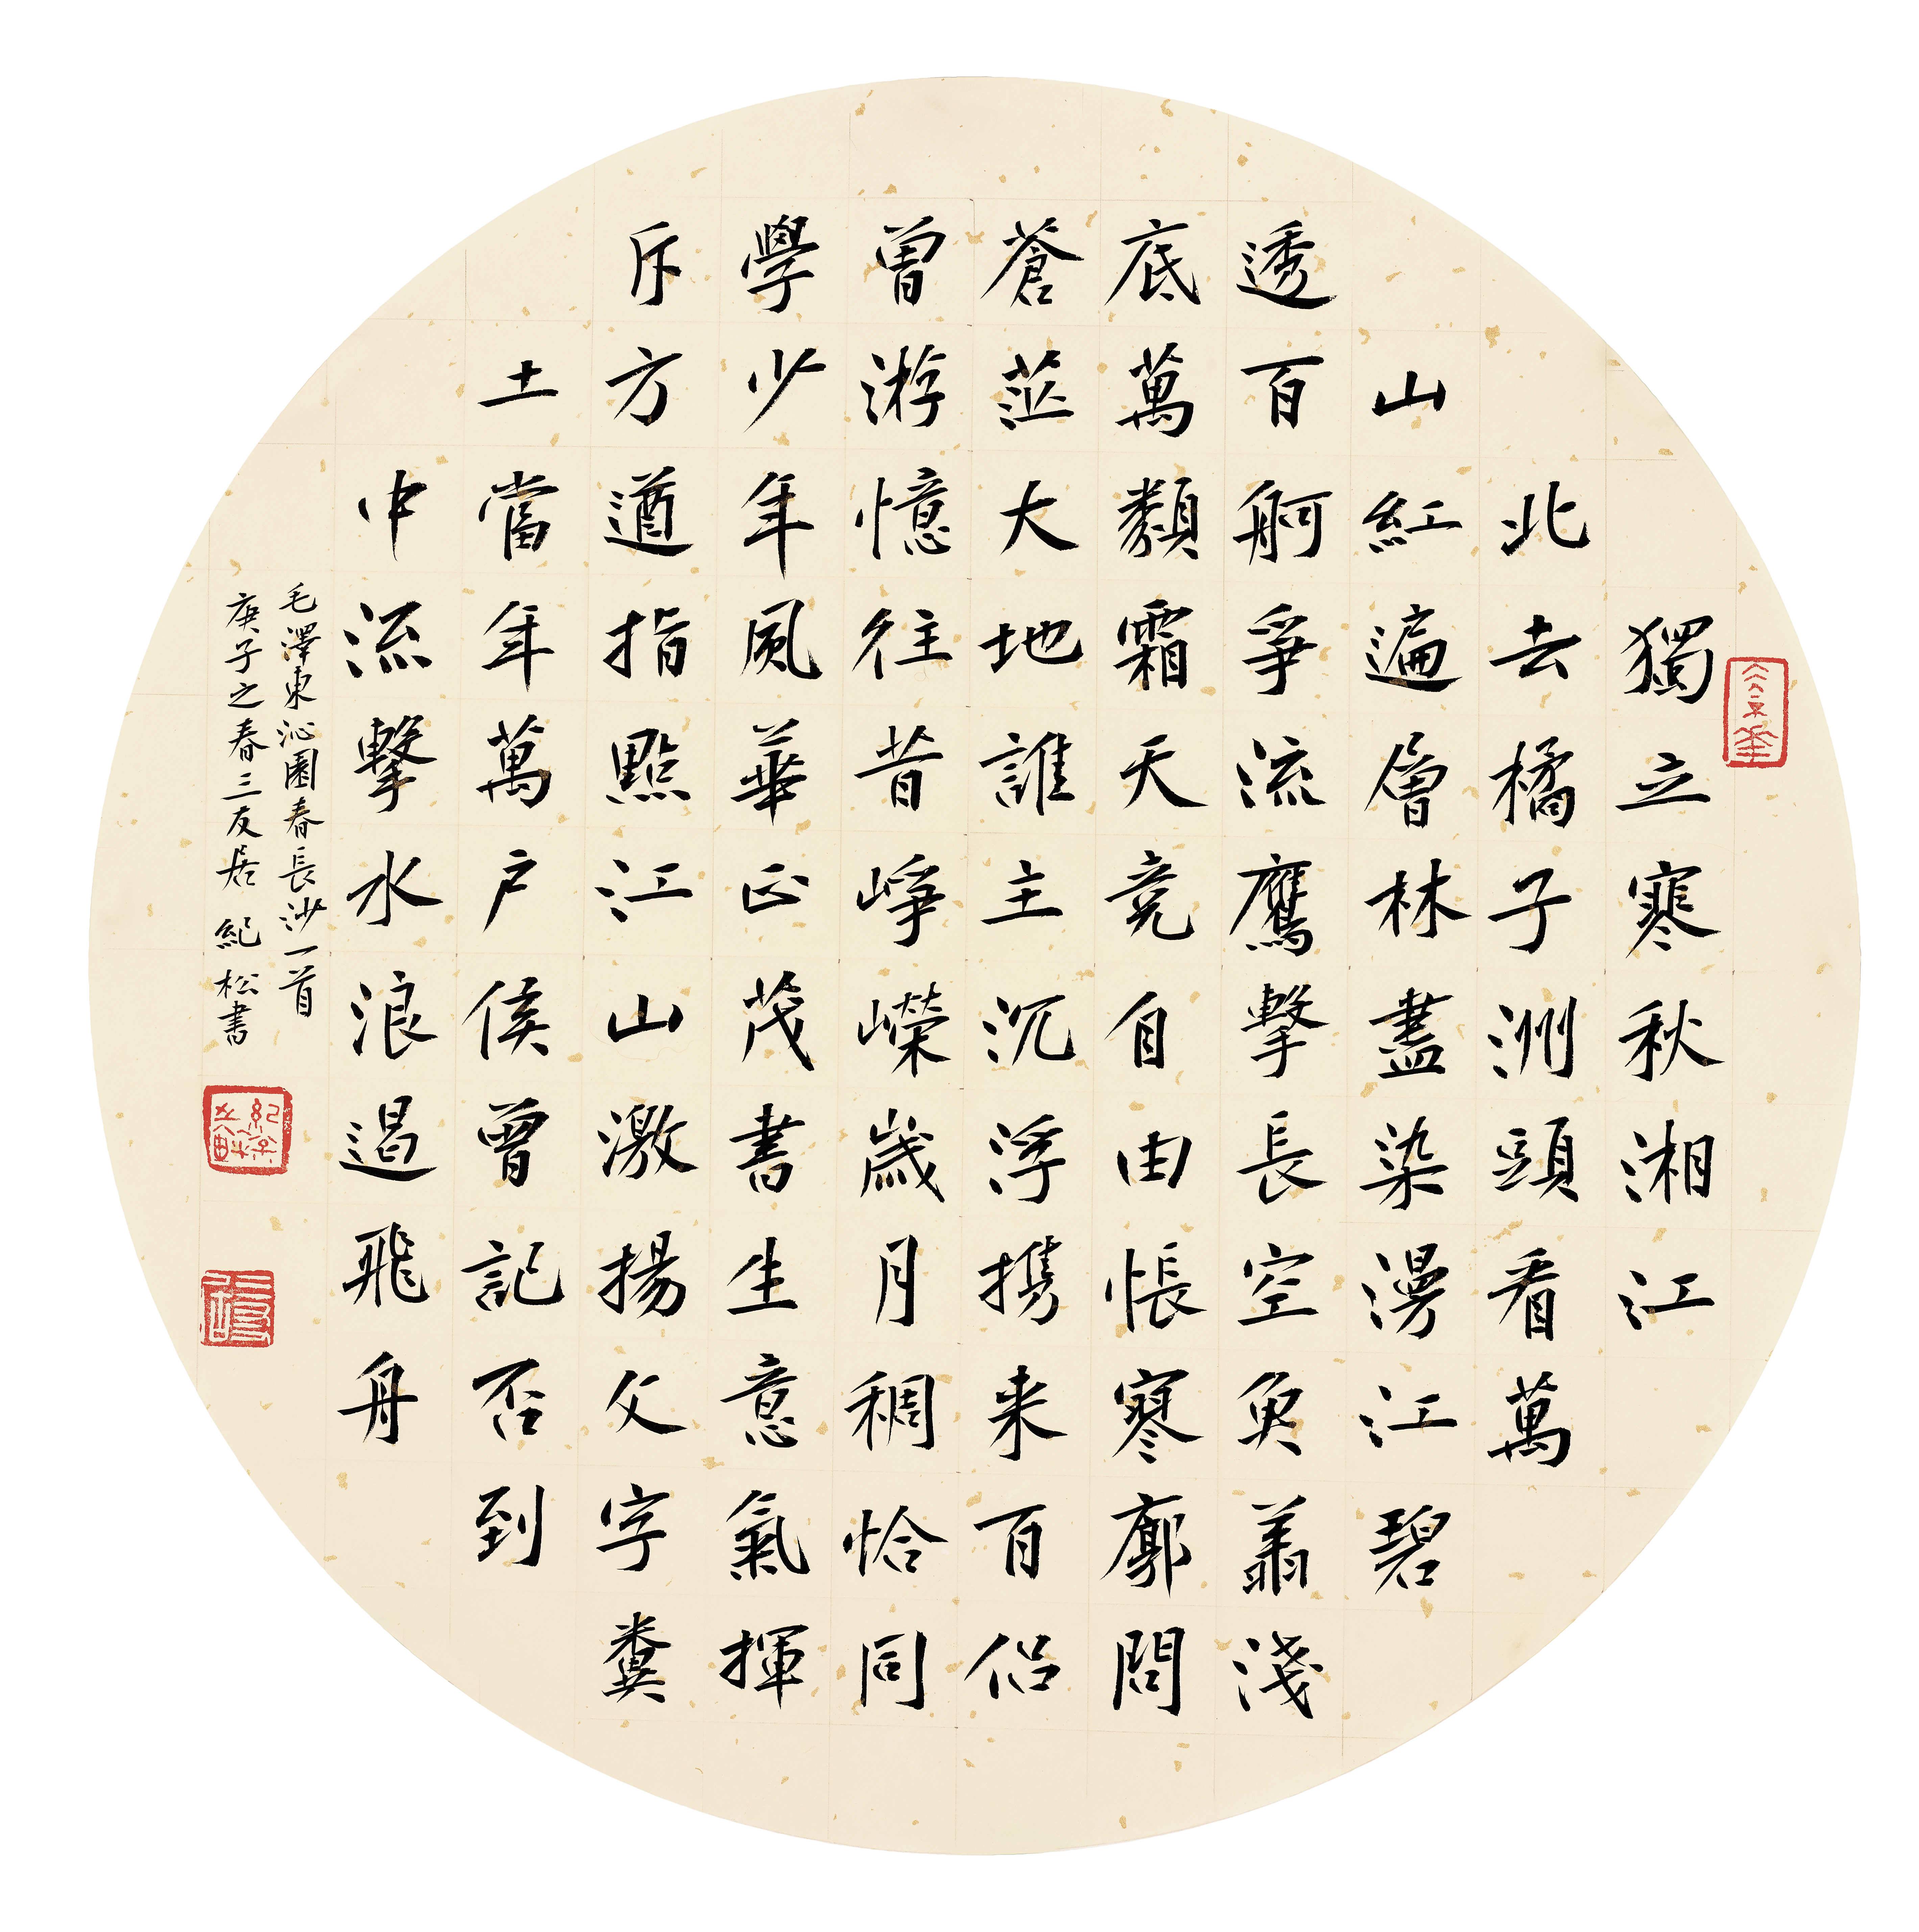 獨立寒秋湘江
北去橘子洲頭看萬
山紅遍層林盡染漫江碧
透百舸爭流鷹擊長空魚翔淺
底萬類霜天竞自由悵寥廓問
蒼茫大地誰主沉浮携来百侣
曾游憶往昔崢嶸歲月稠恰同
學少年風華正茂書生意氣揮
斥方遒指點江山激揚文字糞
土當年萬户侯曾記否到
中流擊水浪遏飛舟
毛澤東沁園春長沙一首
庚子之春三友居紀松書